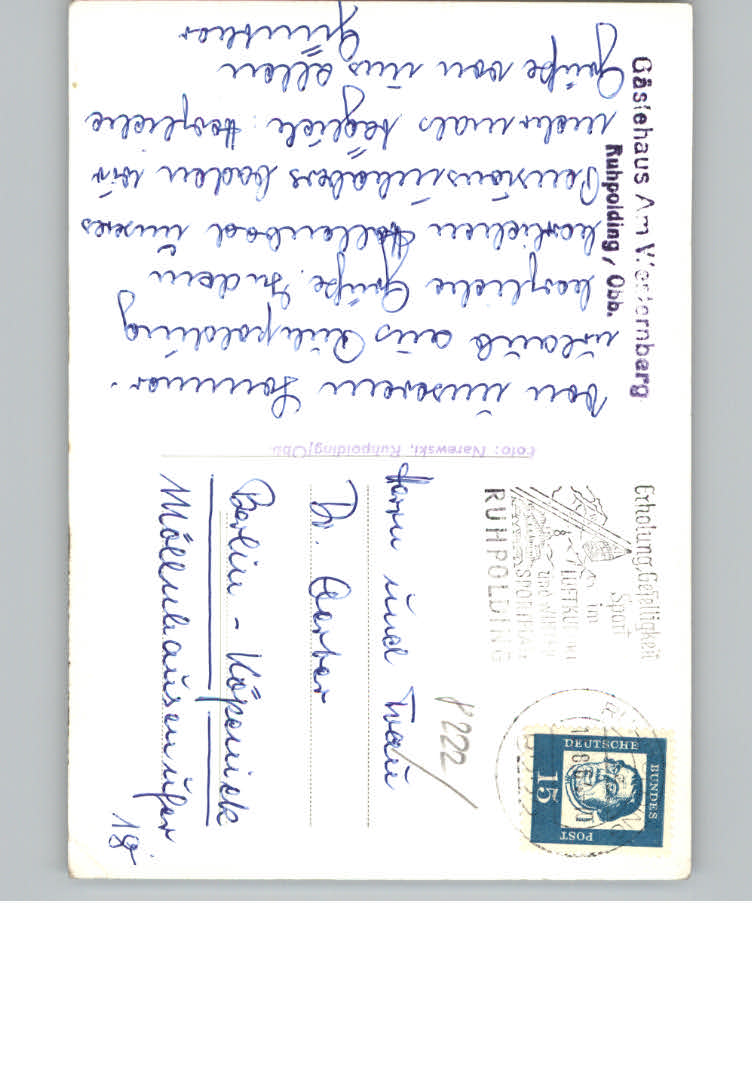 Gästehaus Am Westernberg
Ruhpolding / Obb.
Von unserem Sommer-
urlaub aus Ruhpolding
herzliche Grüße. In dem
herrlichen Hallenbad unseres
Pensionsinhabers baden wir
mehrmals täglich. Herzliche
Grüße von uns allen
Günther
Foto: Narewski, Ruhpolding/Obb.
Erholung, Geselligkeit
Sport
im
LUFTKUR
UND WINTER
SPORTPLATZ
RUHPOLDING
DEUTSCHE
BUNDES
POST
15
P 222
Herrn und Frau
Dr.
Berlin - Köpenick
Müllenhauserufer